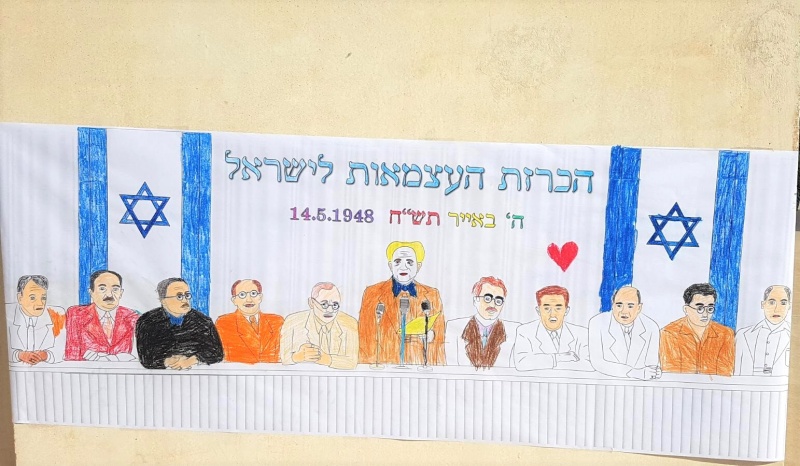 הכרזת העצמאות לישראל
ה' באייר תש"ח 14.5.1948